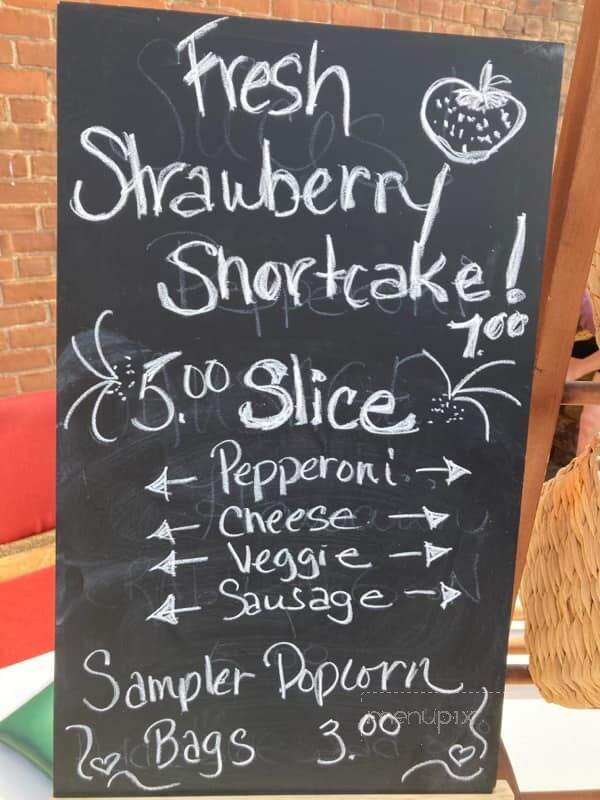 Fresh
Strawberry
Shortcake!
7.00
5.00 Slice
Pepperoni
Cheese
Veggie
Sausage
Sampler Popcorn
Bags 3.00
menupix